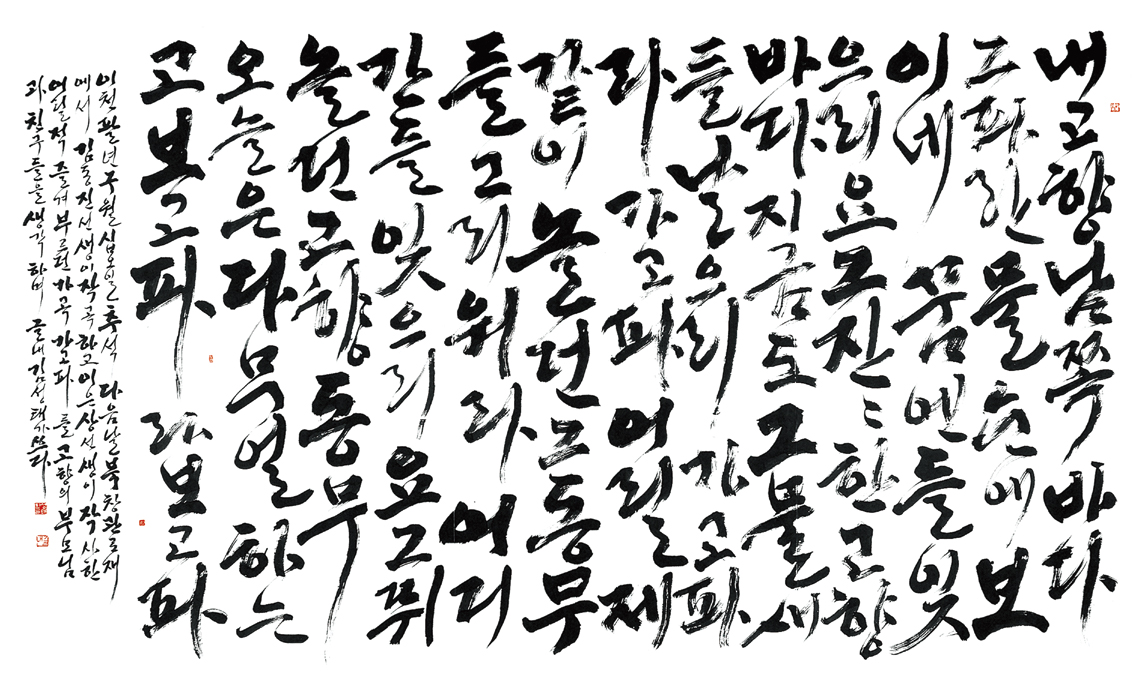 내 고향 남쪽 바다
그 파란 물 눈에 보
이네 꿈엔들 잊
으리요 그 잔〻한 고향
바다 지금도 그 물새
들 날으리 가고파
라 가고파 어릴 제
같이 놀던 그 동무
들 그리워라 어디
간들 잊으리요 그 뛰
놀던 고향 동무
오늘은 다 무얼 하는
고 보고파라 보고파
이천팔년 구월 십오일 추석 다음날 북창관로재
에서 김동진 선생이 작곡하고 이은상 선생이 작사한
어릴적 즐겨 부르던 가곡 가고파를 고향의 부모님
과 친구들을 생각하며 김성태가 쓰다